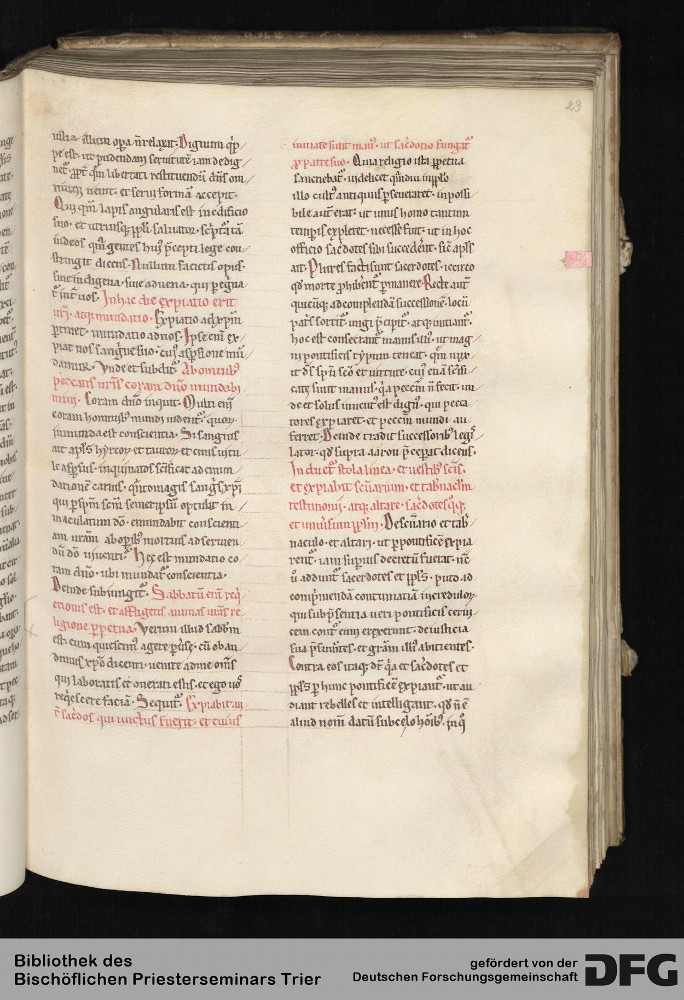 23
illa illum opera n̄ relaxat. Dignum q̄p
pe est. ut
libertati restituendū dn̄s om
nium uenit. et serui formā accepit.
Qui qm̄ lapis angularis est in edificio
suo. et utriusq; ppl̓i saluator. 
iudeos qua gentes hui᷒ p̄cepti lege con
stringit dicens. Nullum facietis opus.
siue indigena. siue aduena. qui pegrinat᷒
In hac die expiatio erit
atq; mundatio. Expiatio ad xp̄m
ptinet. mundatio ad nos. Ipse enī ex
piat nos sanguine suo. cui᷒ asp̄sione mū
damur. Vnde et subdit᷒. Ab omnib᷒
peccatis ur̄is coram dn̄o mundabi
mini. Coram dn̄o inquit. Multi enī
coram hominib᷒ mundi uident᷒. quor̄
inmunda est conscientia. Si sanguis
ait apl̄s hyrcor̄ et tauror̄ et cinis uitu
le aspersus. inquinatos sc̄ificat ad emun
dationē carnis. quantomagis sanguis xp̄i
qui p sp̄m sc̄m semetipsū optulit in
maculatum dō. emundabit conscienti
am ur̄am ab operib᷒ mortuis ad seruien
dū dō uiuenti. Hec est mundatio co
ram dn̄o. ubi mundat᷒ conscientia.
Deinde subiungit᷒. Sabbatū enī req̄
etionis est. et affligetis animas ur̄as re
ligione ppetua. Verum illud sabb̄m
est. cum quiescim᷒ agere puerse. cū ob au
dimus xp̄o dicenti. uenite ad me om̄s
qui laboratis et onerati estis. et ego uos
reqescere faciā. Sequit᷒. Expiabit au
t̄ sac̄dos qui unctus fuerit. et cuius
initiate sunt man᷒. ut sacerdotio fungat᷒
p patre suo. Quia religio ista ppetua
sanciebat᷒. uidelicet quamdiu in pplo
illo cult᷒ antiquus pseueraret. inpossi
bile aut̄ erat. ut unus homo tantum
temporis expleret. necesse fuit. ut in hoc
officio sac̄dotes sibi succederent. sic apl̄s
ait. Plures facti sunt sacerdotes. idcirco
qd̓ morte phibent᷒ pmanere. Recte aut̄
quicūq; ad complendā successionē. locū
patris sortit᷒. ungi p̄cipit᷒. atq; initiant᷒.
hoc est consecrant᷒ manus illi᷒. ut mag
ni pontificis typum teneat. quem unx
it ds̄ sp̄u sc̄o et uirtute. cui᷒ etiā sc̄ifi
cate sunt manus. qia peccatū n̄ fecit. un
de et solus inuent᷒ est dign᷒. qui pecca
tores expiaret. et peccatū mundi au
ferret. Deinde tradit successorib᷒ legis
lator. qd̓ supra aaron p̄ceperat dicens.
Induet᷒ stola linea. et uestib᷒ sc̄is.
et expiabit sc̄uarium. et tabnac̄lm
testimonii. atq; altare. sac̄dotes q̄q;
et uniuersum pplm̄. De sc̄uario et tab
naculo. et altari. ut p pontificē expia
rent᷒. iam superius decretū fuerat. nc̄
ū addunt᷒ sacerdotes et ppls̄. puto ad
comp̄mendā contumatiā incredulor̄
qui sub p̄sentia ueri pontificis cerui
cem contra eum erexerunt. de iusticia
sua p̄sumentes. et gr̄am illi᷒ abicientes.
Contra eos itaq; dr̄ qia et sac̄dotes et
ppls̄ p hunc pontificē expiant᷒. ut au
diant rebelles et intelligant. qd̓ n̄ ē
aliud nom̄ datū sub celo hōib᷒. in q̊
Bibliothek des
Bischöflichen Priesterseminars Trier
gefördert von der
Deutschen Forschungsgemeinschaft
DFG